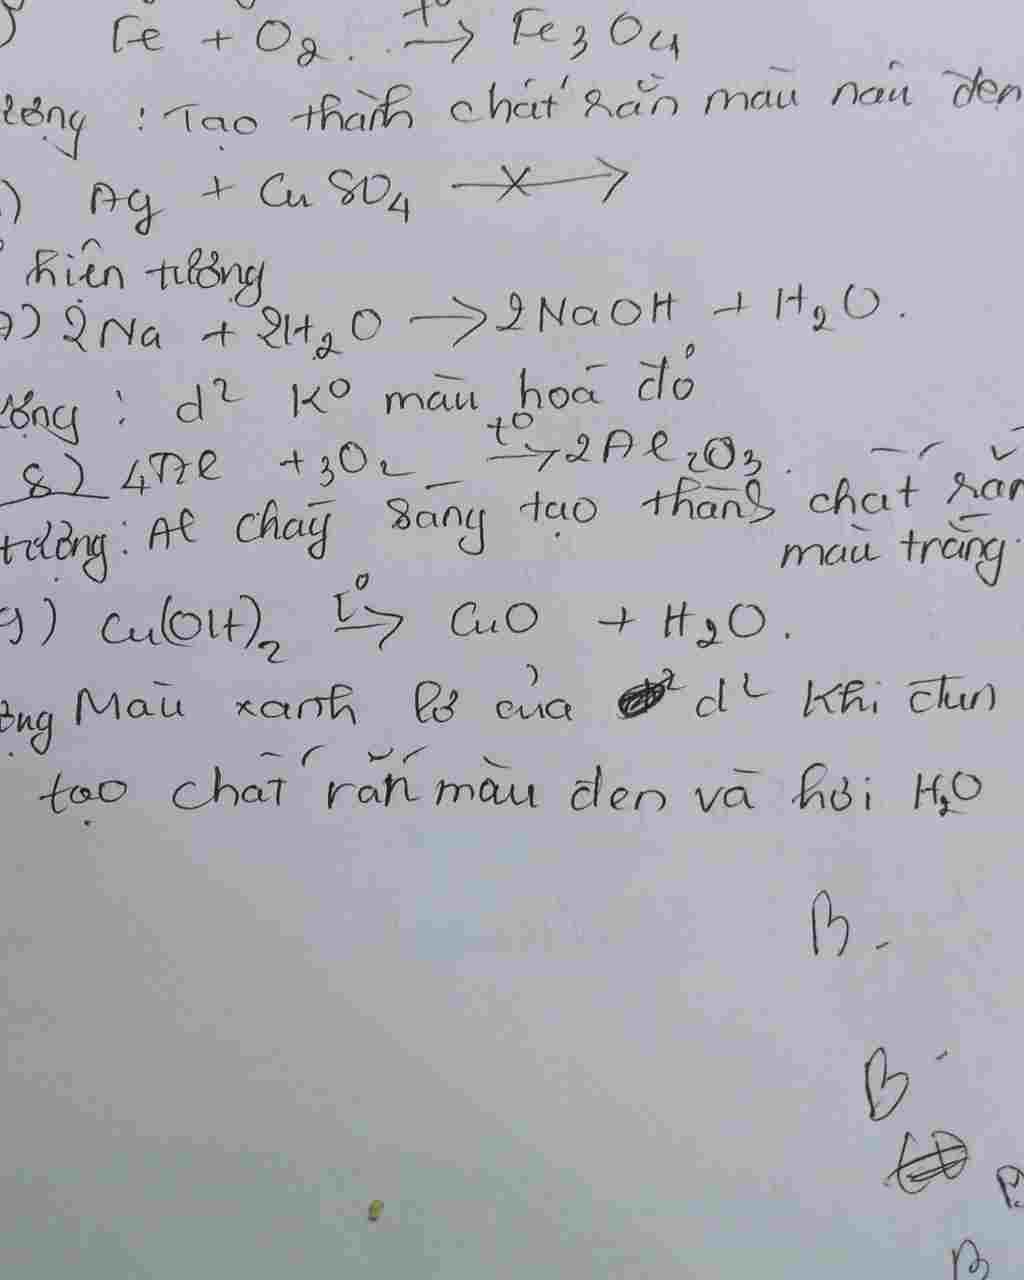 Fe + O2 t° → Fe3O4
ượng : Tạo thành chất rắn màu nâu đen
) Ag + CuSO4 -×->
hiện tượng
7) 2Na + 2H2O → 2NaOH + H2O.
ượng : d² K° màu hoá đỏ
8) 4Al + 3O2 t° → 2Al2O3.
tượng: Al cháy sáng tạo thành chất rắn
màu trắng.
9) Cu(OH)2 t° → CuO + H2O.
ượng Màu xanh lơ của d² khi đun
tạo chất rắn màu đen và hơi H2O
B.
B
B
B